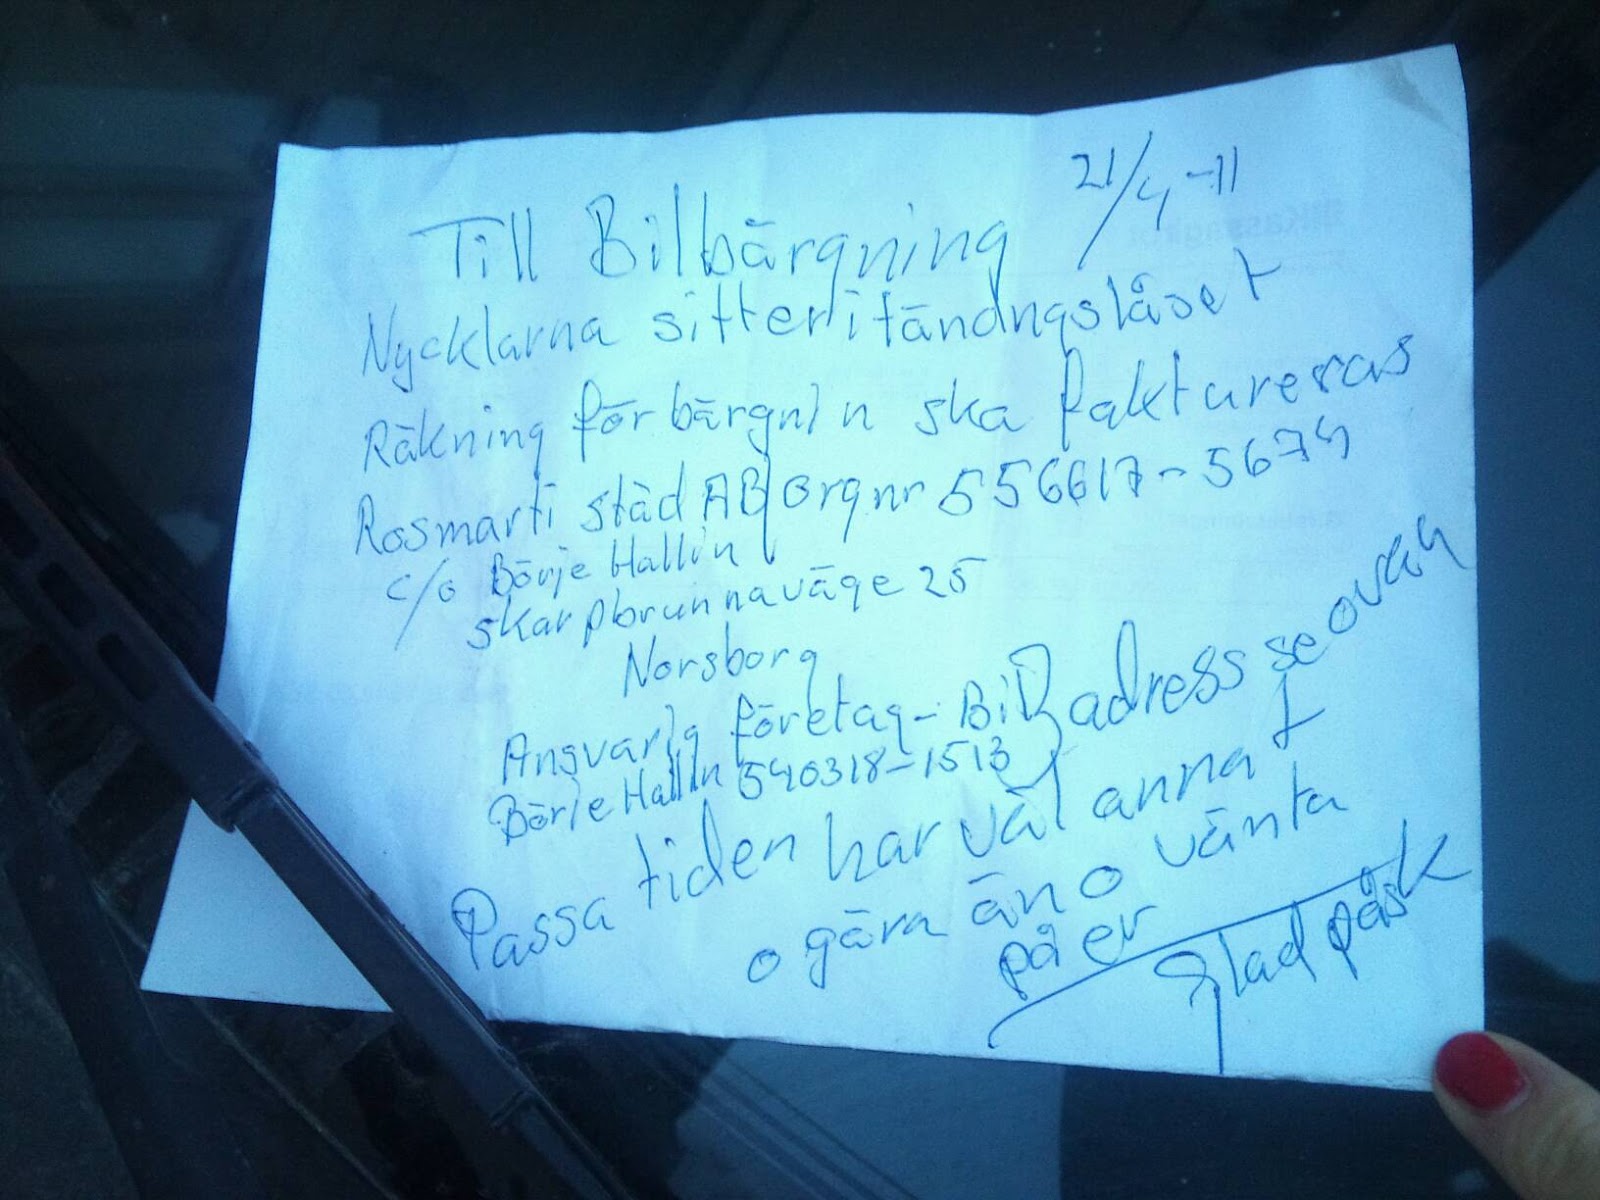 21/4-11
Till Bilbärgning
Nycklarna sitter i tändngslåset
Räkning för bärgnin ska faktureras
Rosmarti städ AB Orgnr 556617-5674
c/o Börje Hallin
skarpbrunnaväge 25
Norsborg
Ansvarig företag-Bil adress se ovan
Börje Hallin 540318-1513
Passa tiden har väl annat
o göra än o vänta
på er
Glad påsk